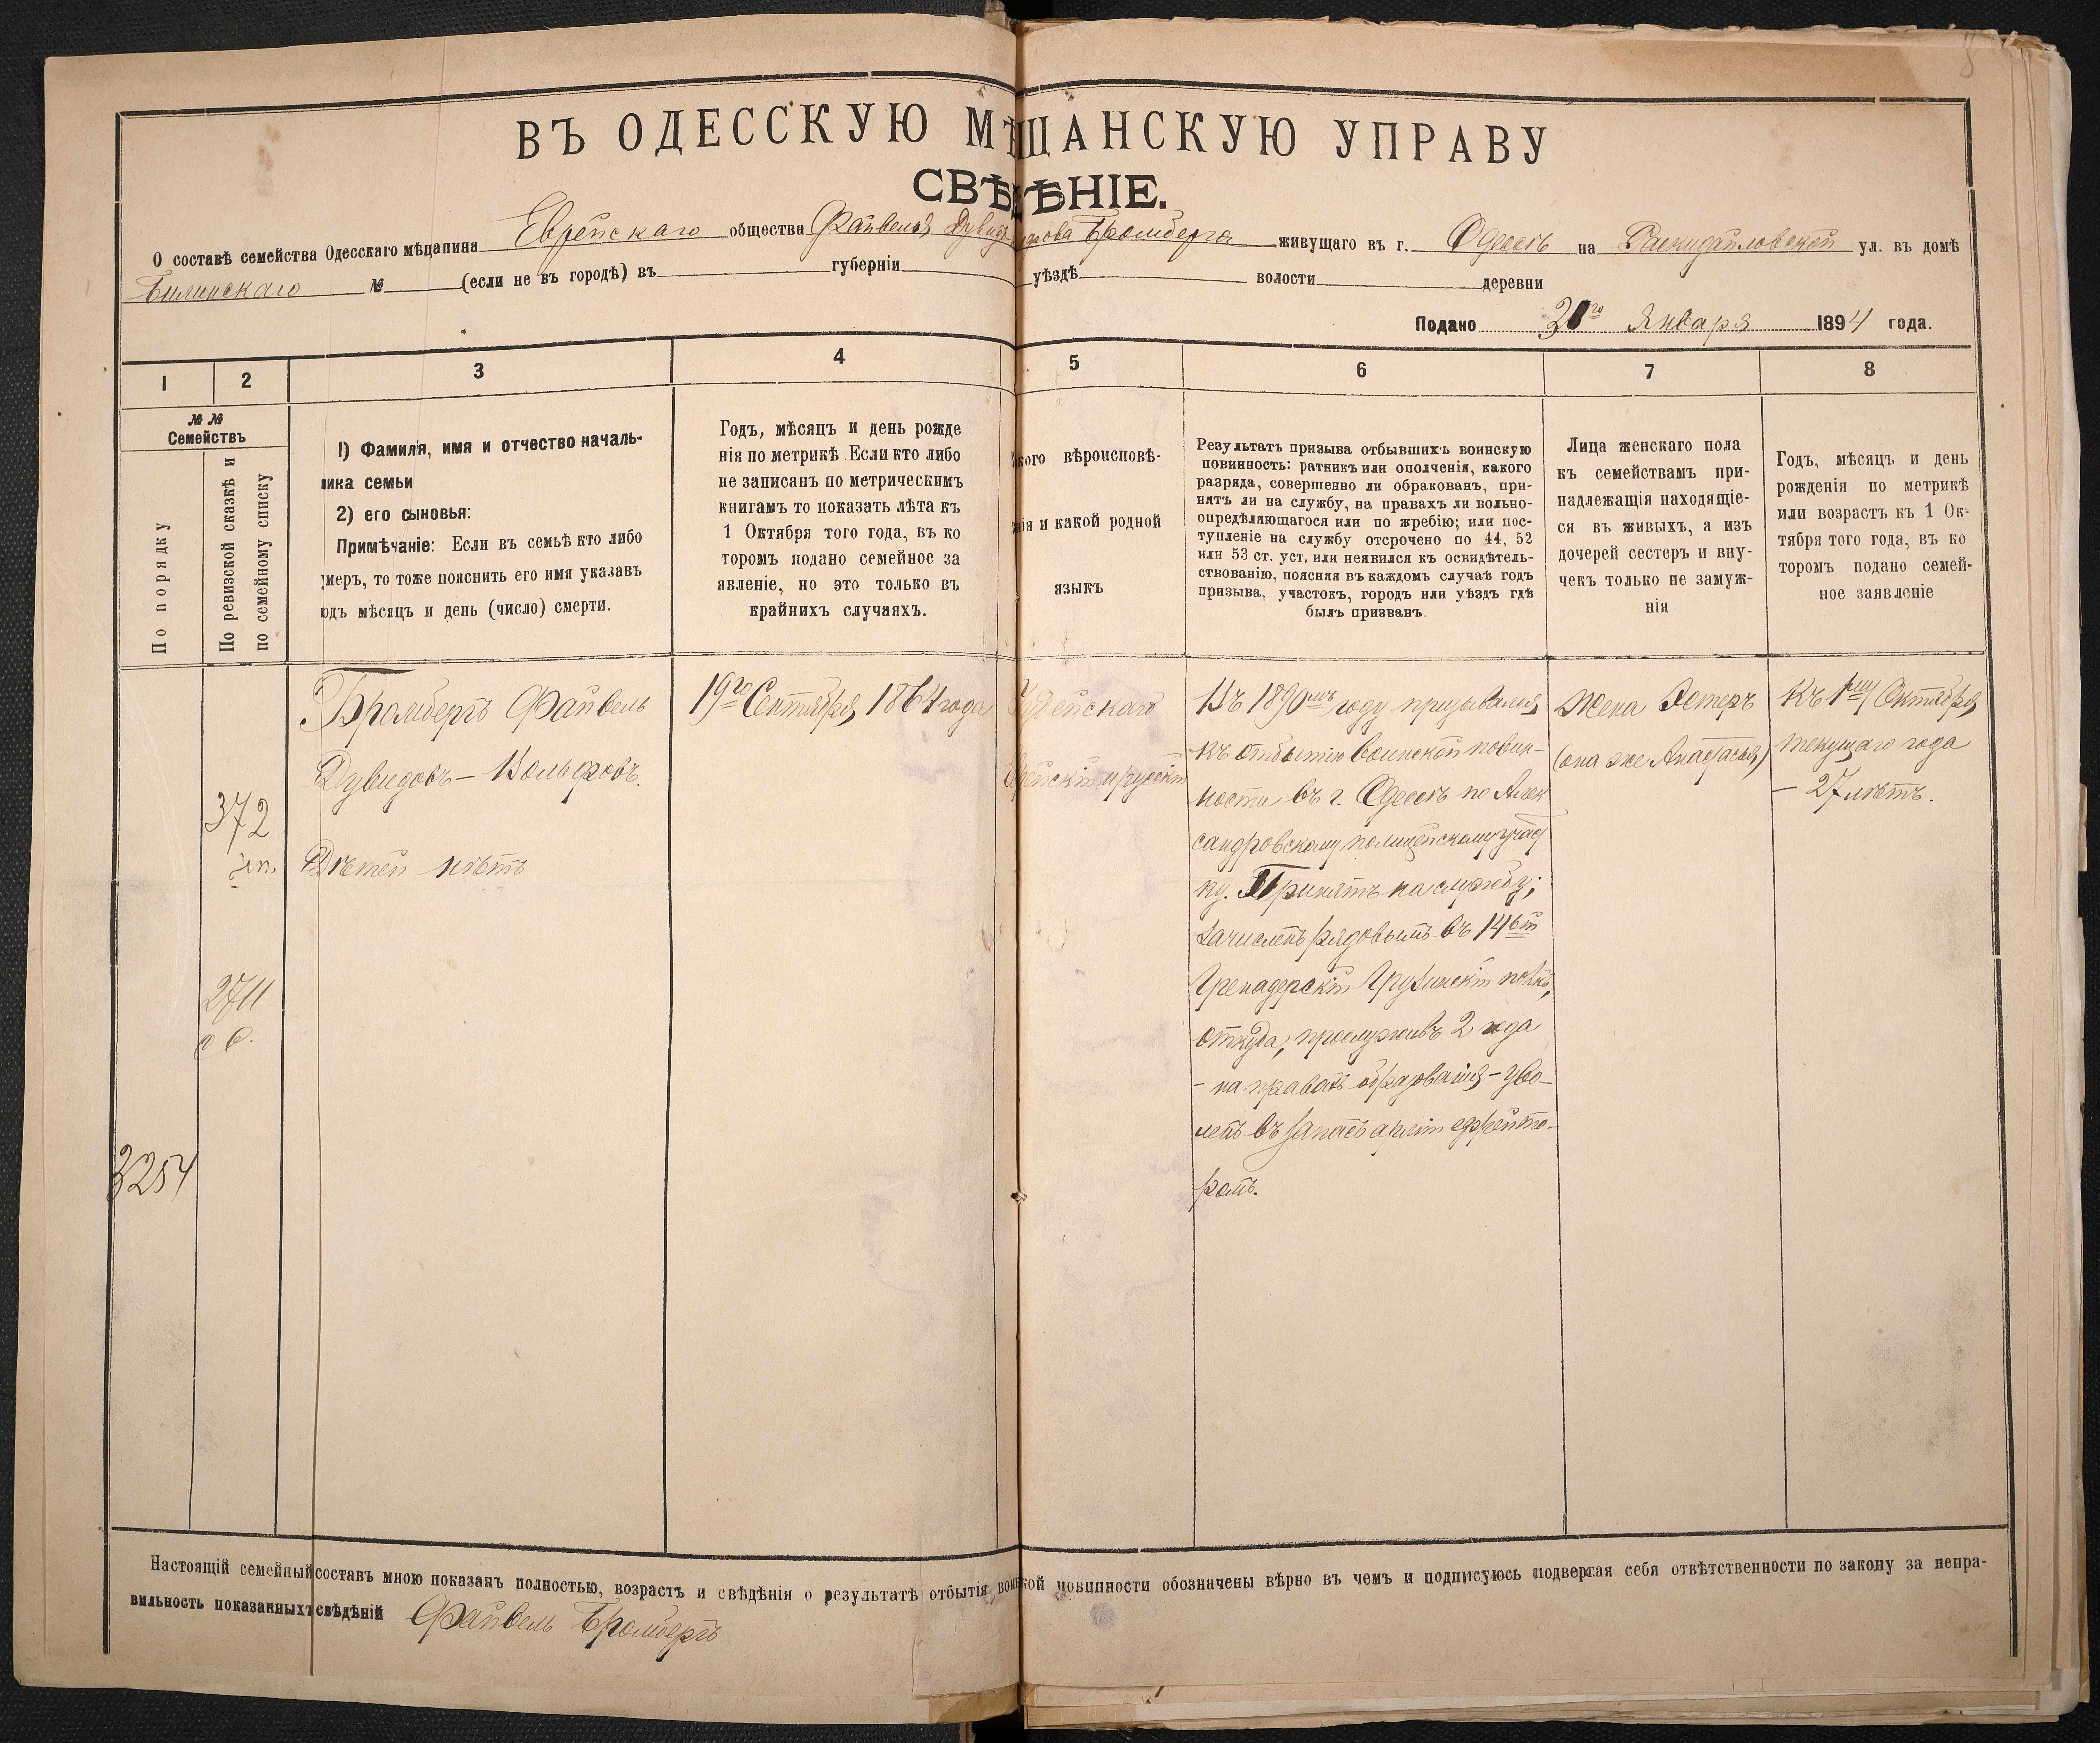 8
ВЪ ОДЕССКУЮ МѢЩАНСКУЮ УПРАВУ
СВѢДѢНІЕ.
О составѣ семейства Одесскаго мѣщанина Еврейскаго общества Файвеля Дувидова Бромберга живущаго въ г. Одессѣ на Раскидайловской ул. въ домѣ
Билинскаго № (если не въ городѣ) въ губерніи уѣздѣ волости деревни
Подано января 1894 года.
1 2 3 4 5 6 7 8
№ №
Семействъ
По порядку
По ревизской сказкѣ и
по семейному списку
1) Фамилія, имя и отчество началь-
ника семьи
2) его сыновья:
Примѣчаніе: Если въ семьѣ кто либо
умеръ, то тоже пояснить его имя указавъ
годъ мѣсяцъ и день (число) смерти.
Годъ, мѣсяцъ и день рожде
нія по метрикѣ. Если кто либо
не записанъ по метрическимъ
книгамъ то показать лѣта къ
1 Октября того года, въ ко
торомъ подано семейное за
явленіе, но это только въ
крайнихъ случаяхъ.
кого вѣроисповѣ-
нія и какой родной
языкъ
Результатъ призыва отбывшихъ воинскую
повинность: ратникъ или ополченія, какого
разряда, совершенно ли обракованъ, при-
нятъ ли на службу, на правахъ ли вольно-
опредѣляющагося или по жребію; или пос-
тупленіе на службу отсрочено по 44, 52
или 53 ст. уст, или неявился къ освидѣтель-
ствованію, поясняя въ каждомъ случаѣ годъ
призыва, участокъ, городъ или уѣздъ гдѣ
былъ призванъ.
Лица женскаго пола
къ семействамъ при-
надлежащія находящіе-
ся въ живыхъ, а изъ
дочерей сестеръ и вну-
чекъ только не замуж-
нія
Годъ, мѣсяцъ и день
рожденія по метрикѣ
или возрастъ къ 1 Ок-
тября того года, въ ко
торомъ подано семей-
ное заявленіе
372
2711
3254
Бромбергъ Файвель
Дувидовъ – Вольфовъ.
Дѣтей нѣтъ
19го Сентября 1864 года
Іудейская
Еврейскій и русскій
Въ 1890мъ году призывался
къ отбытію воинской повин-
ности въ г. Одессѣ по Алек
сандровскому полицейскому участ
ку. Принятъ на службу;
зачисленъ рядовымъ въ 14й
Гренадерскій Грузинскій полкъ,
откуда, прослуживъ 2 года
– на правахъ образованія – уво-
ленъ въ запасъ арміи ефрейто-
ромъ.
Жена Эстеръ
(она же Анастасья)
Къ 1му Октября
текущаго года
– 27 лѣтъ.
Настоящій семейный составъ мною показанъ полностью, возрастъ и свѣдѣнія о результатѣ отбытія воинской повинности обозначены вѣрно въ чемъ и подписуюсь подвергая себя отвѣтственности по закону за непра-
вильность показанныхъ свѣдѣній Файвель Бромбергъ